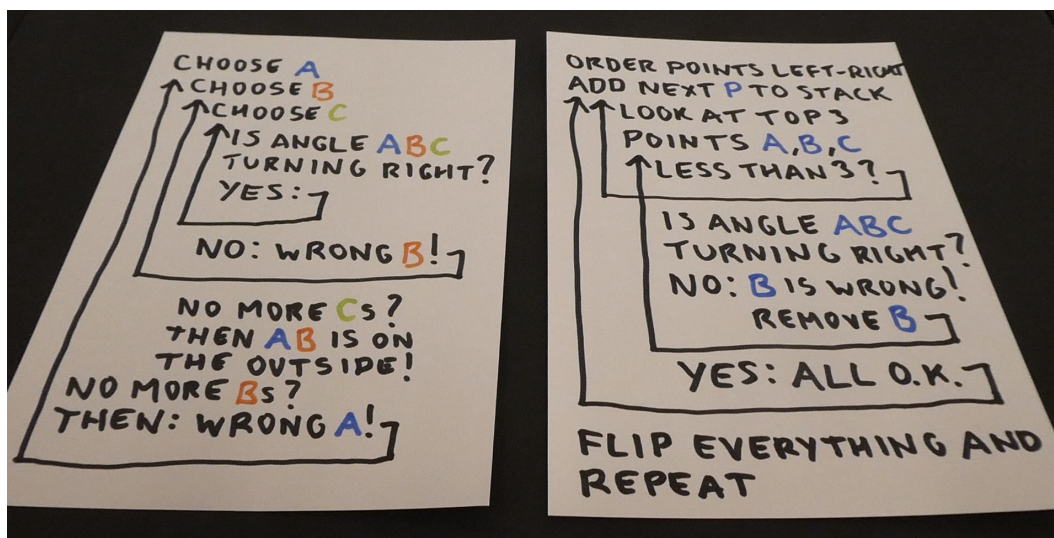 CHOOSE A
CHOOSE B
CHOOSE C
IS ANGLE ABC
TURNING RIGHT?
YES:
NO: WRONG B!
NO MORE Cs?
THEN AB IS ON
THE OUTSIDE!
NO MORE Bs?
THEN: WRONG A!
ORDER POINTS LEFT-RIGHT
ADD NEXT P TO STACK
LOOK AT TOP 3
POINTS A,B,C
LESS THAN 3?
IS ANGLE ABC
TURNING RIGHT?
NO: B IS WRONG!
REMOVE B
YES: ALL O.K.
FLIP EVERYTHING AND
REPEAT